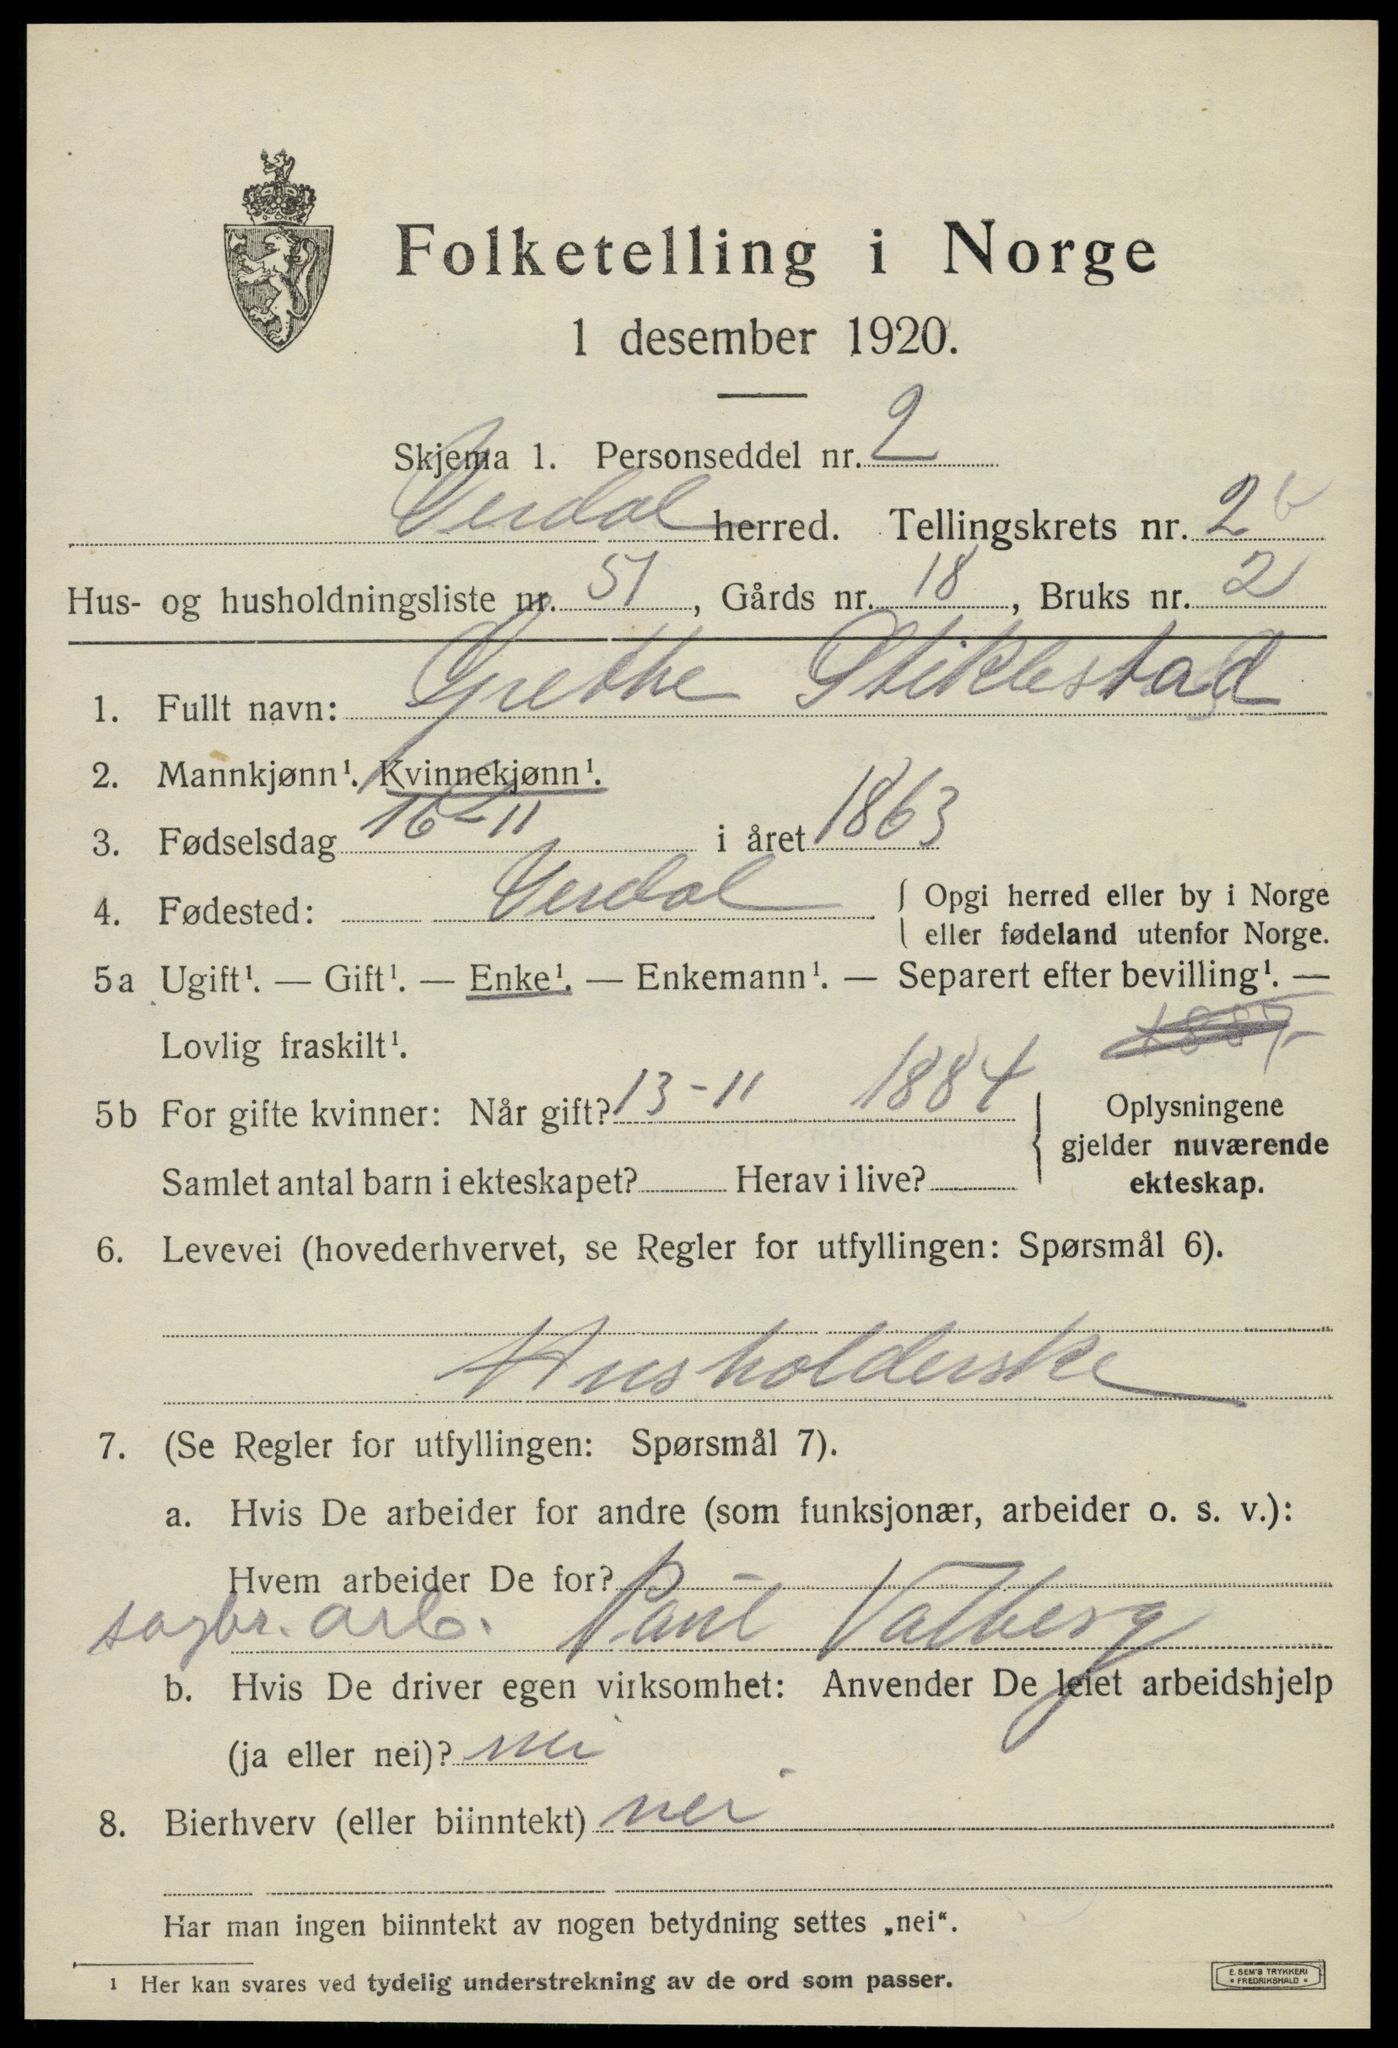 Folketelling i Norge
1 desember 1920.
Skjema 1. Personseddel nr. 2
Verdal herred. Tellingskrets nr. 2 b
Hus- og husholdningsliste nr. 51, Gårds nr. 18, Bruks nr. 2
1. Fullt navn: Grethe Stiklestad
2. Mannkjønn¹. Kvinnekjønn¹.
3. Fødselsdag 16-11 i året 1863
4. Fødested: Verdal { Opgi herred eller by i Norge
eller fødeland utenfor Norge.
5a Ugift¹. — Gift¹. — Enke¹. — Enkemann¹. — Separert efter bevilling¹. —
Lovlig fraskilt¹.
5b For gifte kvinner: Når gift? 13-11 1884 } Oplysningene
gjelder nuværende
Samlet antal barn i ekteskapet? Herav i live? ekteskap.
6. Levevei (hovederhvervet, se Regler for utfyllingen: Spørsmål 6).
Husholderske
7. (Se Regler for utfyllingen: Spørsmål 7).
a. Hvis De arbeider for andre (som funksjonær, arbeider o. s. v.):
Hvem arbeider De for?
sagbr. arb. Paul Valberg
b. Hvis De driver egen virksomhet: Anvender De leiet arbeidshjelp
(ja eller nei)? nei
8. Bierhverv (eller biinntekt) nei
Har man ingen biinntekt av nogen betydning settes „nei“.
¹ Her kan svares ved tydelig understrekning av de ord som passer.
E. SEM'S TRYKKERI
• FREDRIKSHALD •